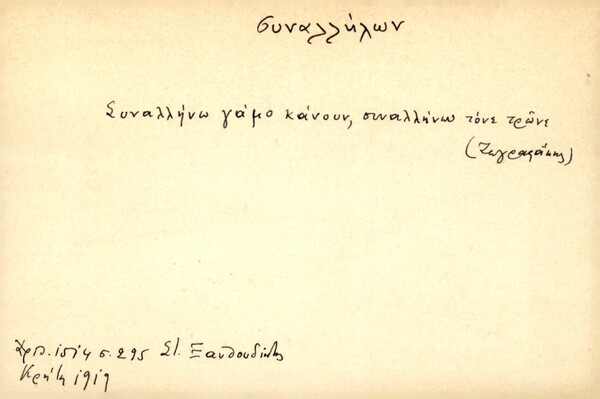 συναλλήλων
Συναλλήνω γάμο κάνουν, συναλλήνω τόνε τρῶνε
(Ζωγραφάκης)
Χρφ. 1514 σ. 295 Στ. Ξανθουδίδης
Κρήτη 1919